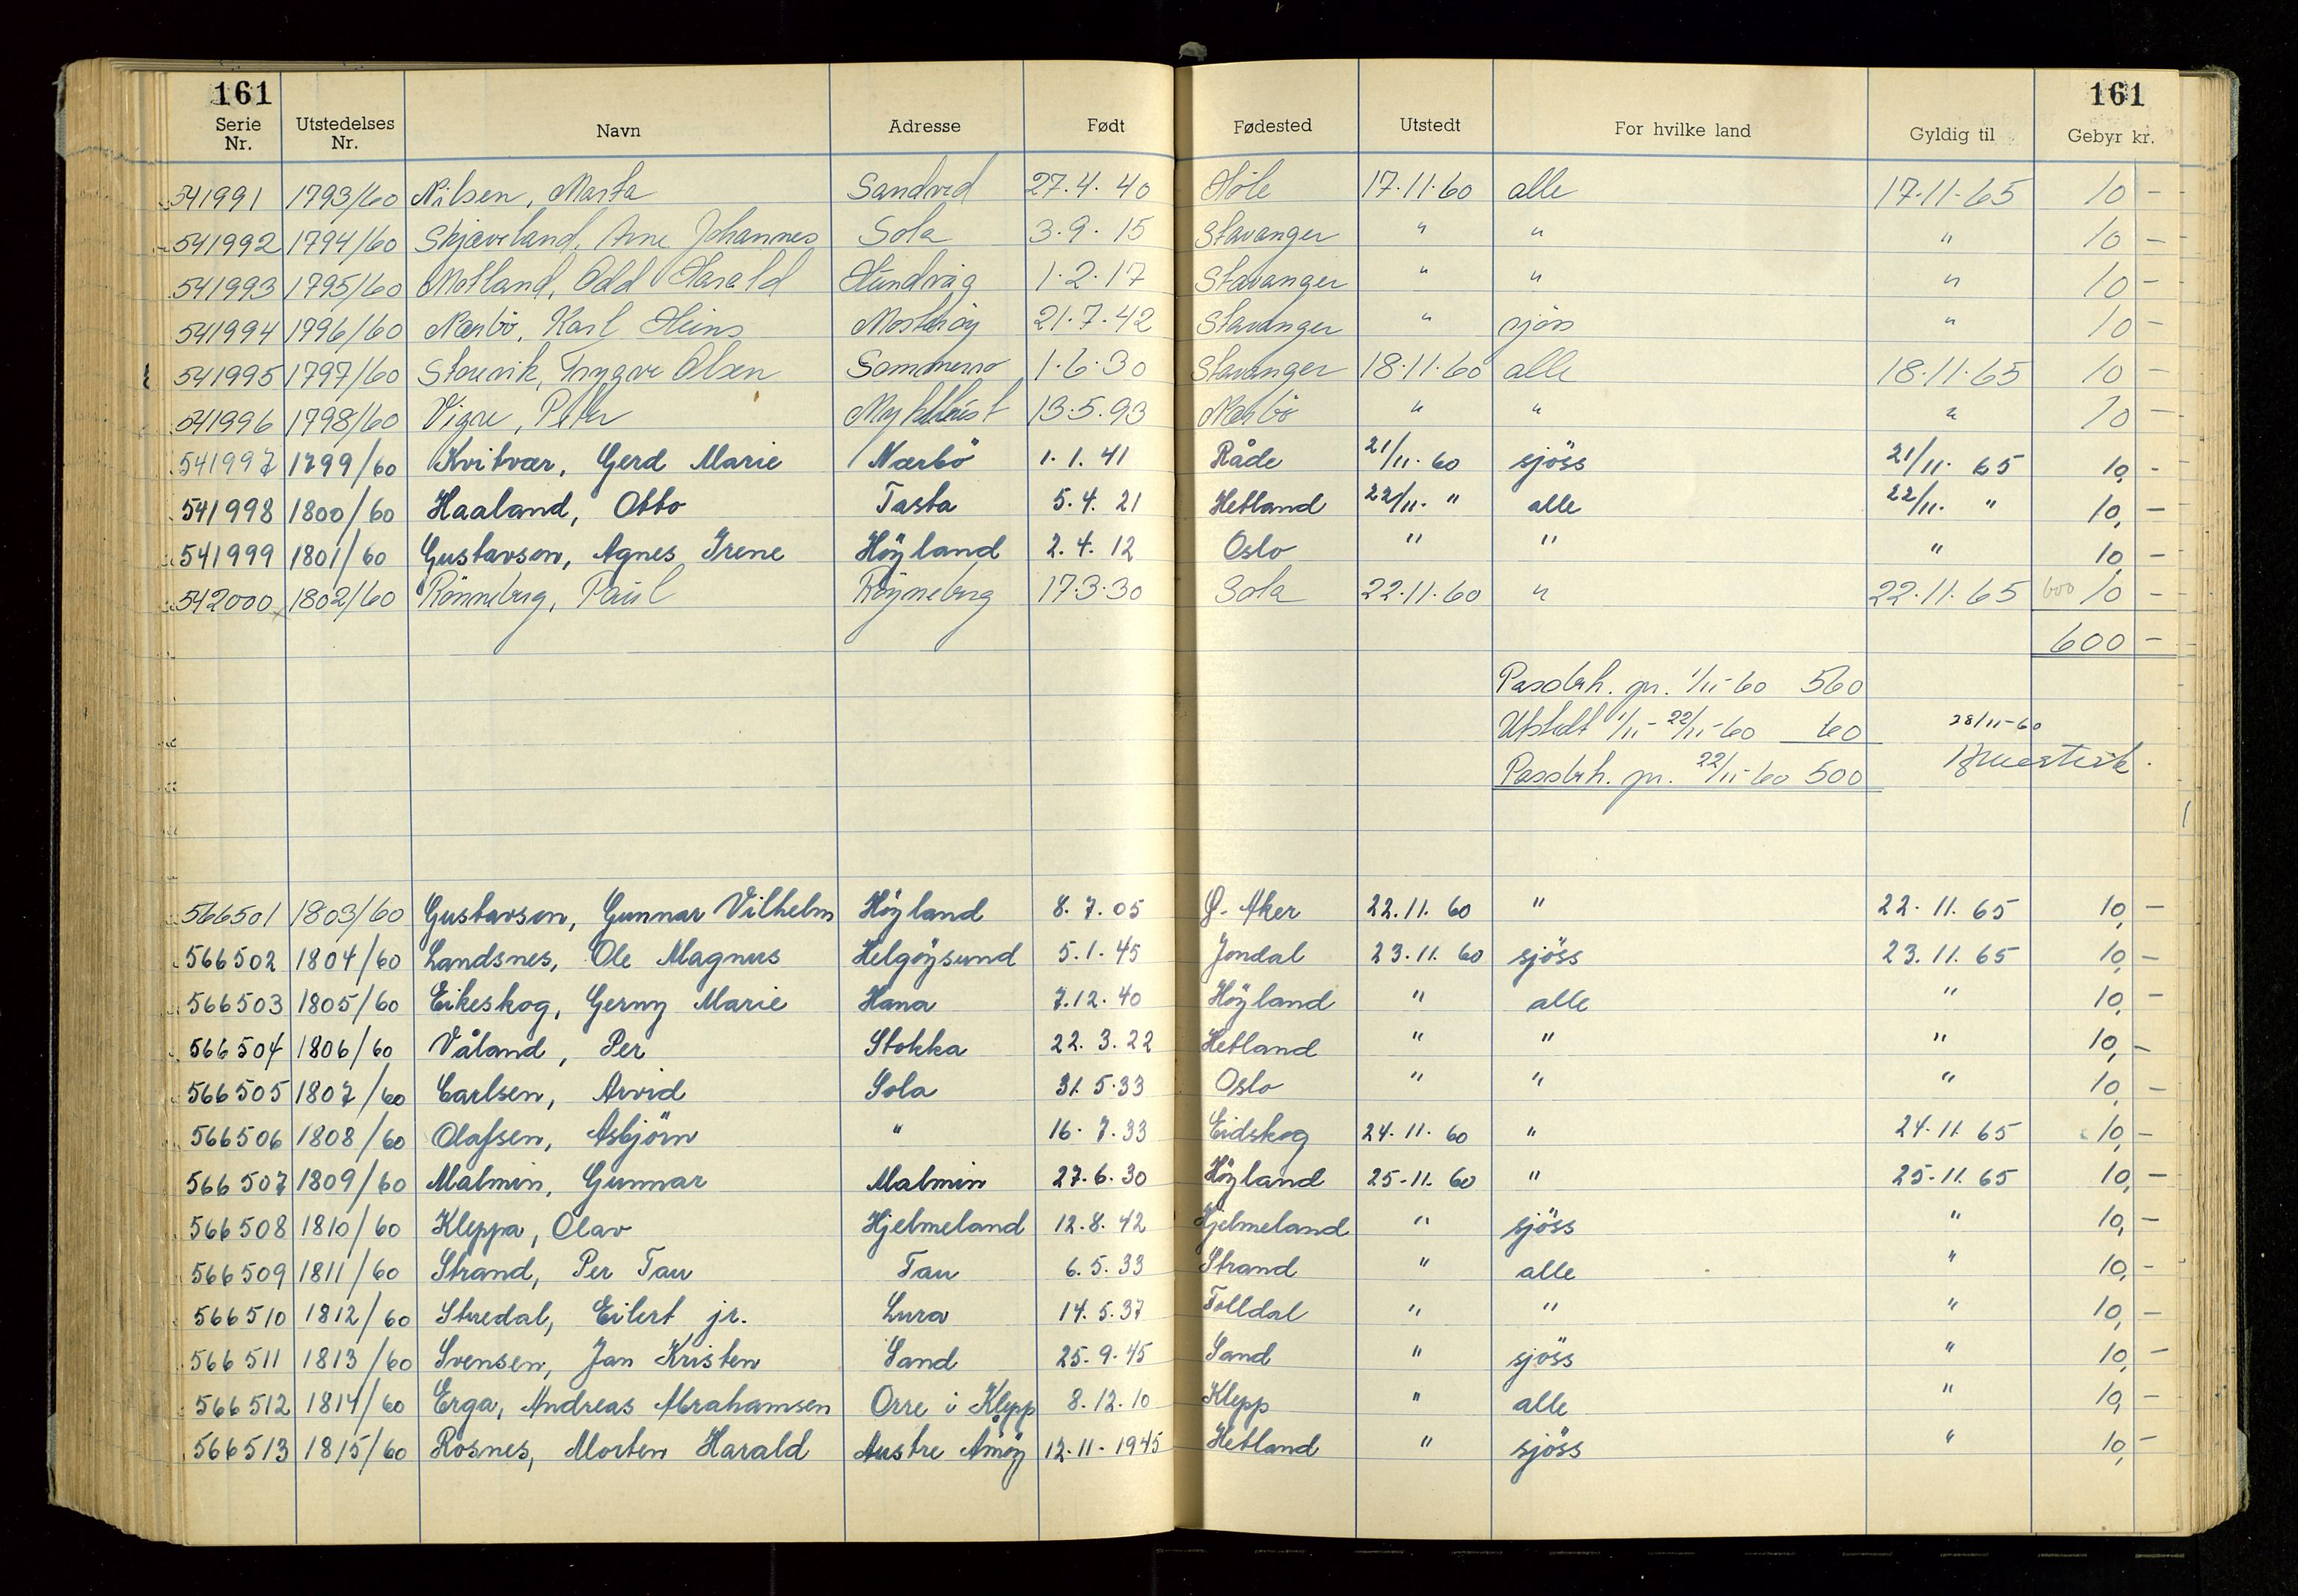 161 161
Serie Nr. Utstedelses Nr. Navn Adresse Født Fødested Utstedt For hvilke land Gyldig til Gebyr kr.
541991 1793/60 Nilsen, Marta Sandved 27.4.40 Høle 17.11.60 alle 17.11.65 10 -
541992 1794/60 Skjæveland, Arne Johannes Sola 3.9.15 Stavanger " " " 10 -
541993 1795/60 Motland, Odd Harald Hundvåg 1.2.17 Stavanger " " " 10 -
541994 1796/60 Nærbö, Karl Heins Mosterøy 21.7.42 Stavanger " sjöss " 10 -
541995 1797/60 Trygve Olsen 1.6.30 Stavanger 18.11.60 alle 18.11.65 10 -
541996 1798/60 Vigre, Peter 13.5.93 Nærbö " " " 10 -
541997 1799/60 Kvitvær, Gerd Marie Nærbö 1.1.41 Råde 21/11.60 sjöss 21/11.65 10, -
541998 1800/60 Haaland, Otto Tasta 5.4.21 Hetland 22/11. " alle 22/11. " 10, -
541999 1801/60 Gustavson, Agnes Irene Höyland 2.4.12 Oslo " " " 10, -
542000 1802/60 Rönneberg, Paul Röyneberg 17.3.30 Sola 22.11.60 " 22.11.65 600 10 -
600 -
Passbeh. pr. 1/11-60 560
Utstedt 1/11-22/11-60 60 28/11-60
Passbeh. pr. 22/11-60 500
566501 1803/60 Gustavson, Gunnar Vilhelm Höyland 8.7.05 Ø. Aker 22.11.60 " 22.11.65 10, -
566502 1804/60 Landsnes, Ole Magnus Helgöysund 5.1.45 Jondal 23.11.60 sjöss 23.11.65 10, -
566503 1805/60 Eikeskog, Gerny Marie Hana 7.12.40 Höyland " alle " 10, -
566504 1806/60 Våland, Per Stokka 22.3.22 Hetland " " " 10, -
566505 1807/60 Carlsen, Arvid Sola 31.5.33 Oslo " " " 10, -
566506 1808/60 Olafsen, Asbjörn " 16.7.33 Eidskog 24.11.60 " 24.11.65 10, -
566507 1809/60 Malmin, Gunnar Malmin 27.6.30 Höyland 25.11.60 " 25.11.65 10, -
566508 1810/60 Kleppa, Olav Hjelmeland 12.8.42 Hjelmeland " sjöss " 10, -
566509 1811/60 Strand, Per Tau Tau 6.5.33 Strand " alle " 10, -
566510 1812/60 Stuedal, Eilert jr. Lura 14.5.37 Folldal " " " 10, -
566511 1813/60 Svensen, Jan Kristen Sand 25.9.45 Sand " sjöss " 10, -
566512 1814/60 Erga, Andreas Abrahamsen Orre i Klepp 8.12.10 Klepp " alle " 10, -
566513 1815/60 Rosnes, Morten Harald Austre Åmöy 12.11.1945 Hetland " sjöss " 10, -